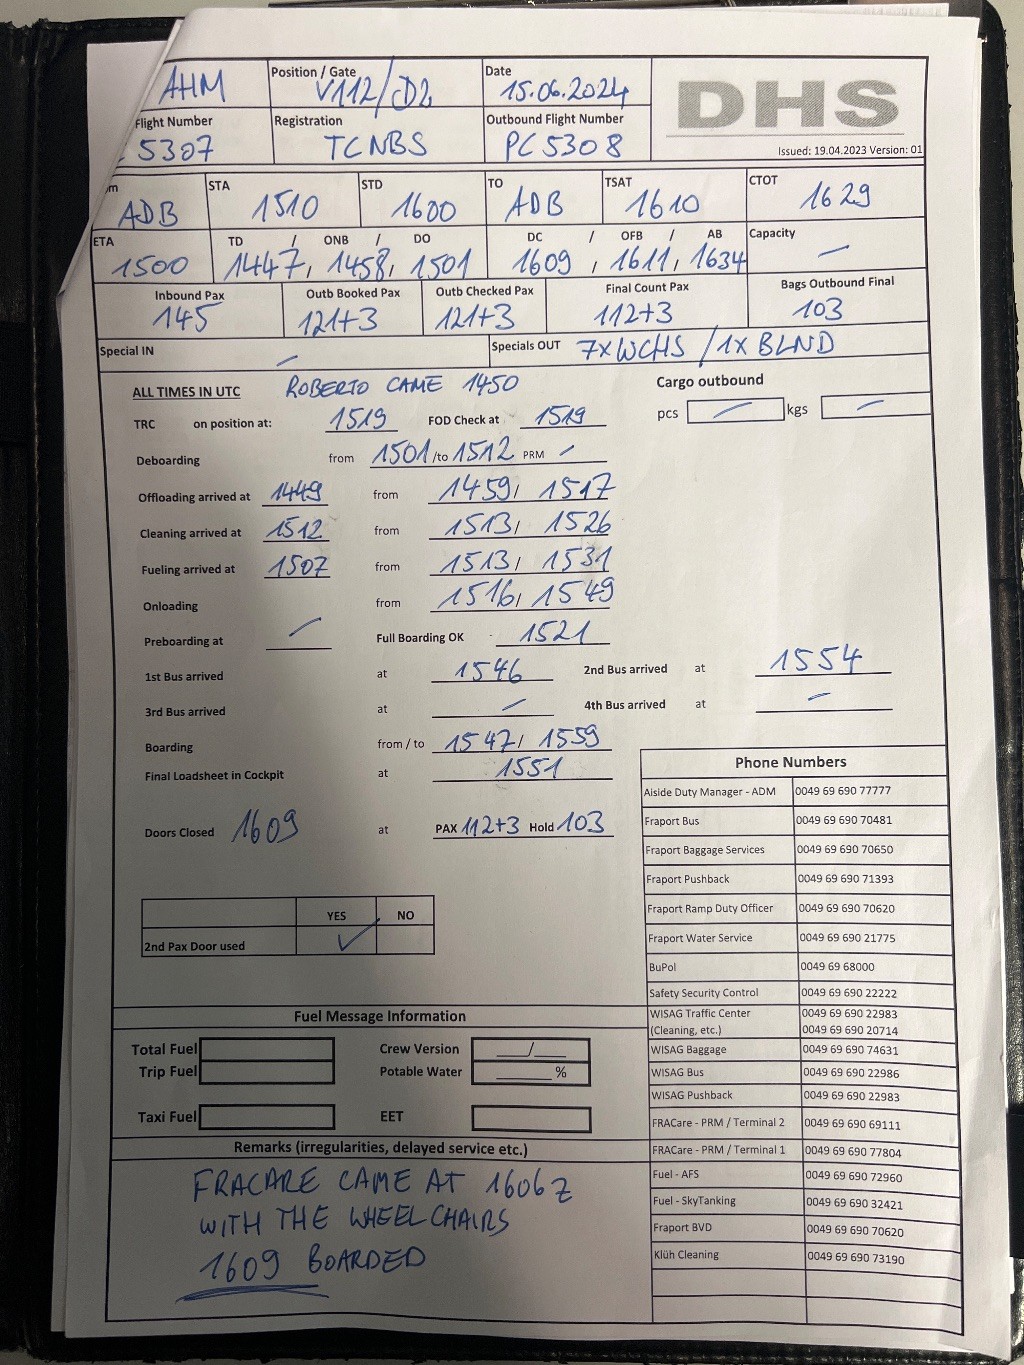 AHM
Position / Gate
V112/D2
Date
15.06.2024
DHS
Issued: 19.04.2023 Version: 01
Flight Number
5307
Registration
TCNBS
Outbound Flight Number
PC 5308
ADB
STA
1510
STD
1600
TO
ADB
TSAT
1610
CTOT
1629
ETA
1500
TD / ONB / DO
1447, 1458, 1501
DC / OFB / AB
1609, 1611, 1634
Capacity
–
Inbound Pax
145
Outb Booked Pax
121+3
Outb Checked Pax
121+3
Final Count Pax
112+3
Bags Outbound Final
103
Special IN –
Specials OUT 7xWCHS /1x BLND
ALL TIMES IN UTC ROBERTO CAME 1450
Cargo outbound
pcs – kgs –
TRC on position at: 1519 FOD Check at 1519
Deboarding from 1501 /to 1512 PRM –
Offloading arrived at 1449 from 1459, 1517
Cleaning arrived at 1512 from 1513, 1526
Fueling arrived at 1507 from 1513, 1531
Onloading from 1516, 1549
Preboarding at – Full Boarding OK 1521
1st Bus arrived at 1546 2nd Bus arrived at 1554
3rd Bus arrived at – 4th Bus arrived at –
Boarding from / to 1547, 1559
Final Loadsheet in Cockpit at 1551
Doors Closed 1609 at PAX 112+3 Hold 103
YES NO
2nd Pax Door used ✓
Phone Numbers
Aiside Duty Manager - ADM 0049 69 690 77777
Fraport Bus 0049 69 690 70481
Fraport Baggage Services 0049 69 690 70650
Fraport Pushback 0049 69 690 71393
Fraport Ramp Duty Officer 0049 69 690 70620
Fraport Water Service 0049 69 690 21775
BuPol 0049 69 68000
Safety Security Control 0049 69 690 22222
WISAG Traffic Center 0049 69 690 22983
(Cleaning, etc.) 0049 69 690 20714
WISAG Baggage 0049 69 690 74631
WISAG Bus 0049 69 690 22986
WISAG Pushback 0049 69 690 22983
FRACare - PRM / Terminal 2 0049 69 690 69111
FRACare - PRM / Terminal 1 0049 69 690 77804
Fuel - AFS 0049 69 690 72960
Fuel - SkyTanking 0049 69 690 32421
Fraport BVD 0049 69 690 70620
Klüh Cleaning 0049 69 690 73190
Fuel Message Information
Total Fuel Crew Version __/__
Trip Fuel Potable Water ____ %
Taxi Fuel EET
Remarks (irregularities, delayed service etc.)
FRACARE CAME AT 1606Z
WITH THE WHEELCHAIRS
1609 BOARDED